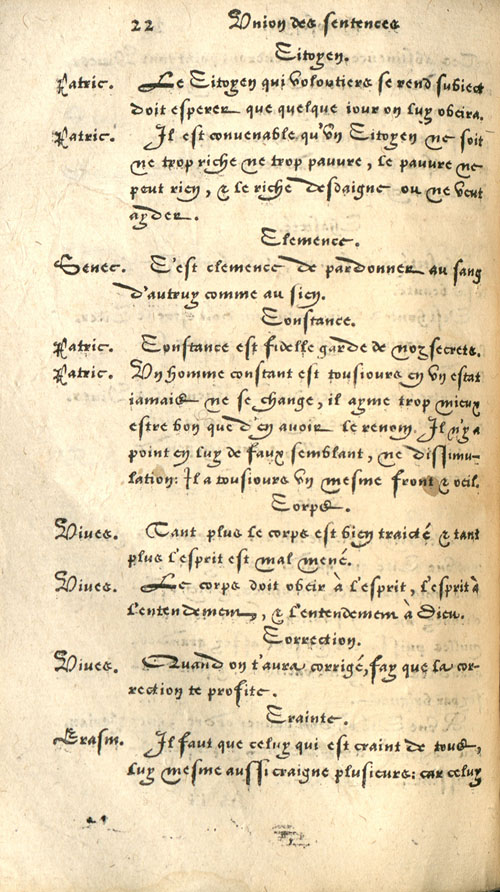 22 Vnion des sentences
Citoyen.
Patric. Le Citoyen qui voloutiers se rend subiect
doit esperer que quelque iour on luy obeira.
Patric. Il est conuenable qu'vn Citoyen ne soit
ne trop riche ne trop pauure, le pauure ne
peut rien, & le riche desdaigne ou ne veut
ayder.
Clemence.
Senec. C'est clemence de pardonner au sang
d'autruy comme au sien.
Constance.
Patric. Constance est fidelle garde de noz secrets.
Patric. Vn homme constant est tousiours en vn estat
iamais ne se change, il ayme trop mieux
estre bon que d'en auoir le renom. Il n'y a
point en luy de faux semblant, ne dissimu-
lation: Il a tousiours vn mesme front & oeil.
Corps.
Viues. Tant plus le corps est bien traicté & tant
plus l'esprit est mal mené.
Viues. Le corps doit obeir à l'esprit, l'esprit à
l'entendement, & l'entendement à Dieu.
Correction.
Viues. Quand on t'aura corrigé, fay que la cor-
rection te profite.
Crainte.
Erasm. Il faut que celuy qui est craint de tous,
luy mesme aussi craigne plusieurs: car celuy